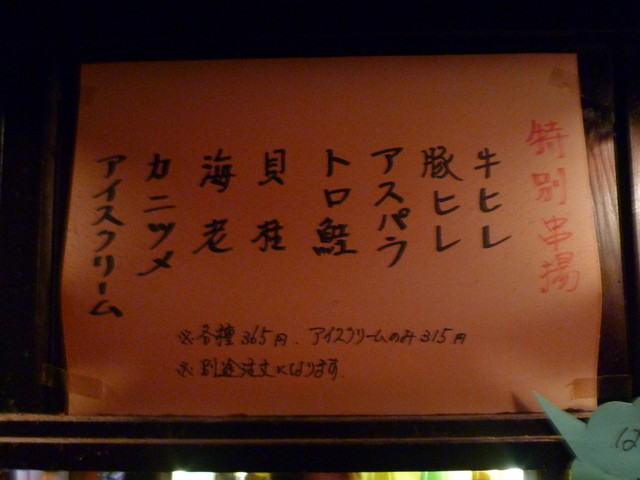 特別串揚
牛ヒレ
豚ヒレ
アスパラ
トロ鮭
貝柱
海老
カニツメ
アイスクリーム
※各種365円.アイスクリームのみ315円
※別途注文になります.
12